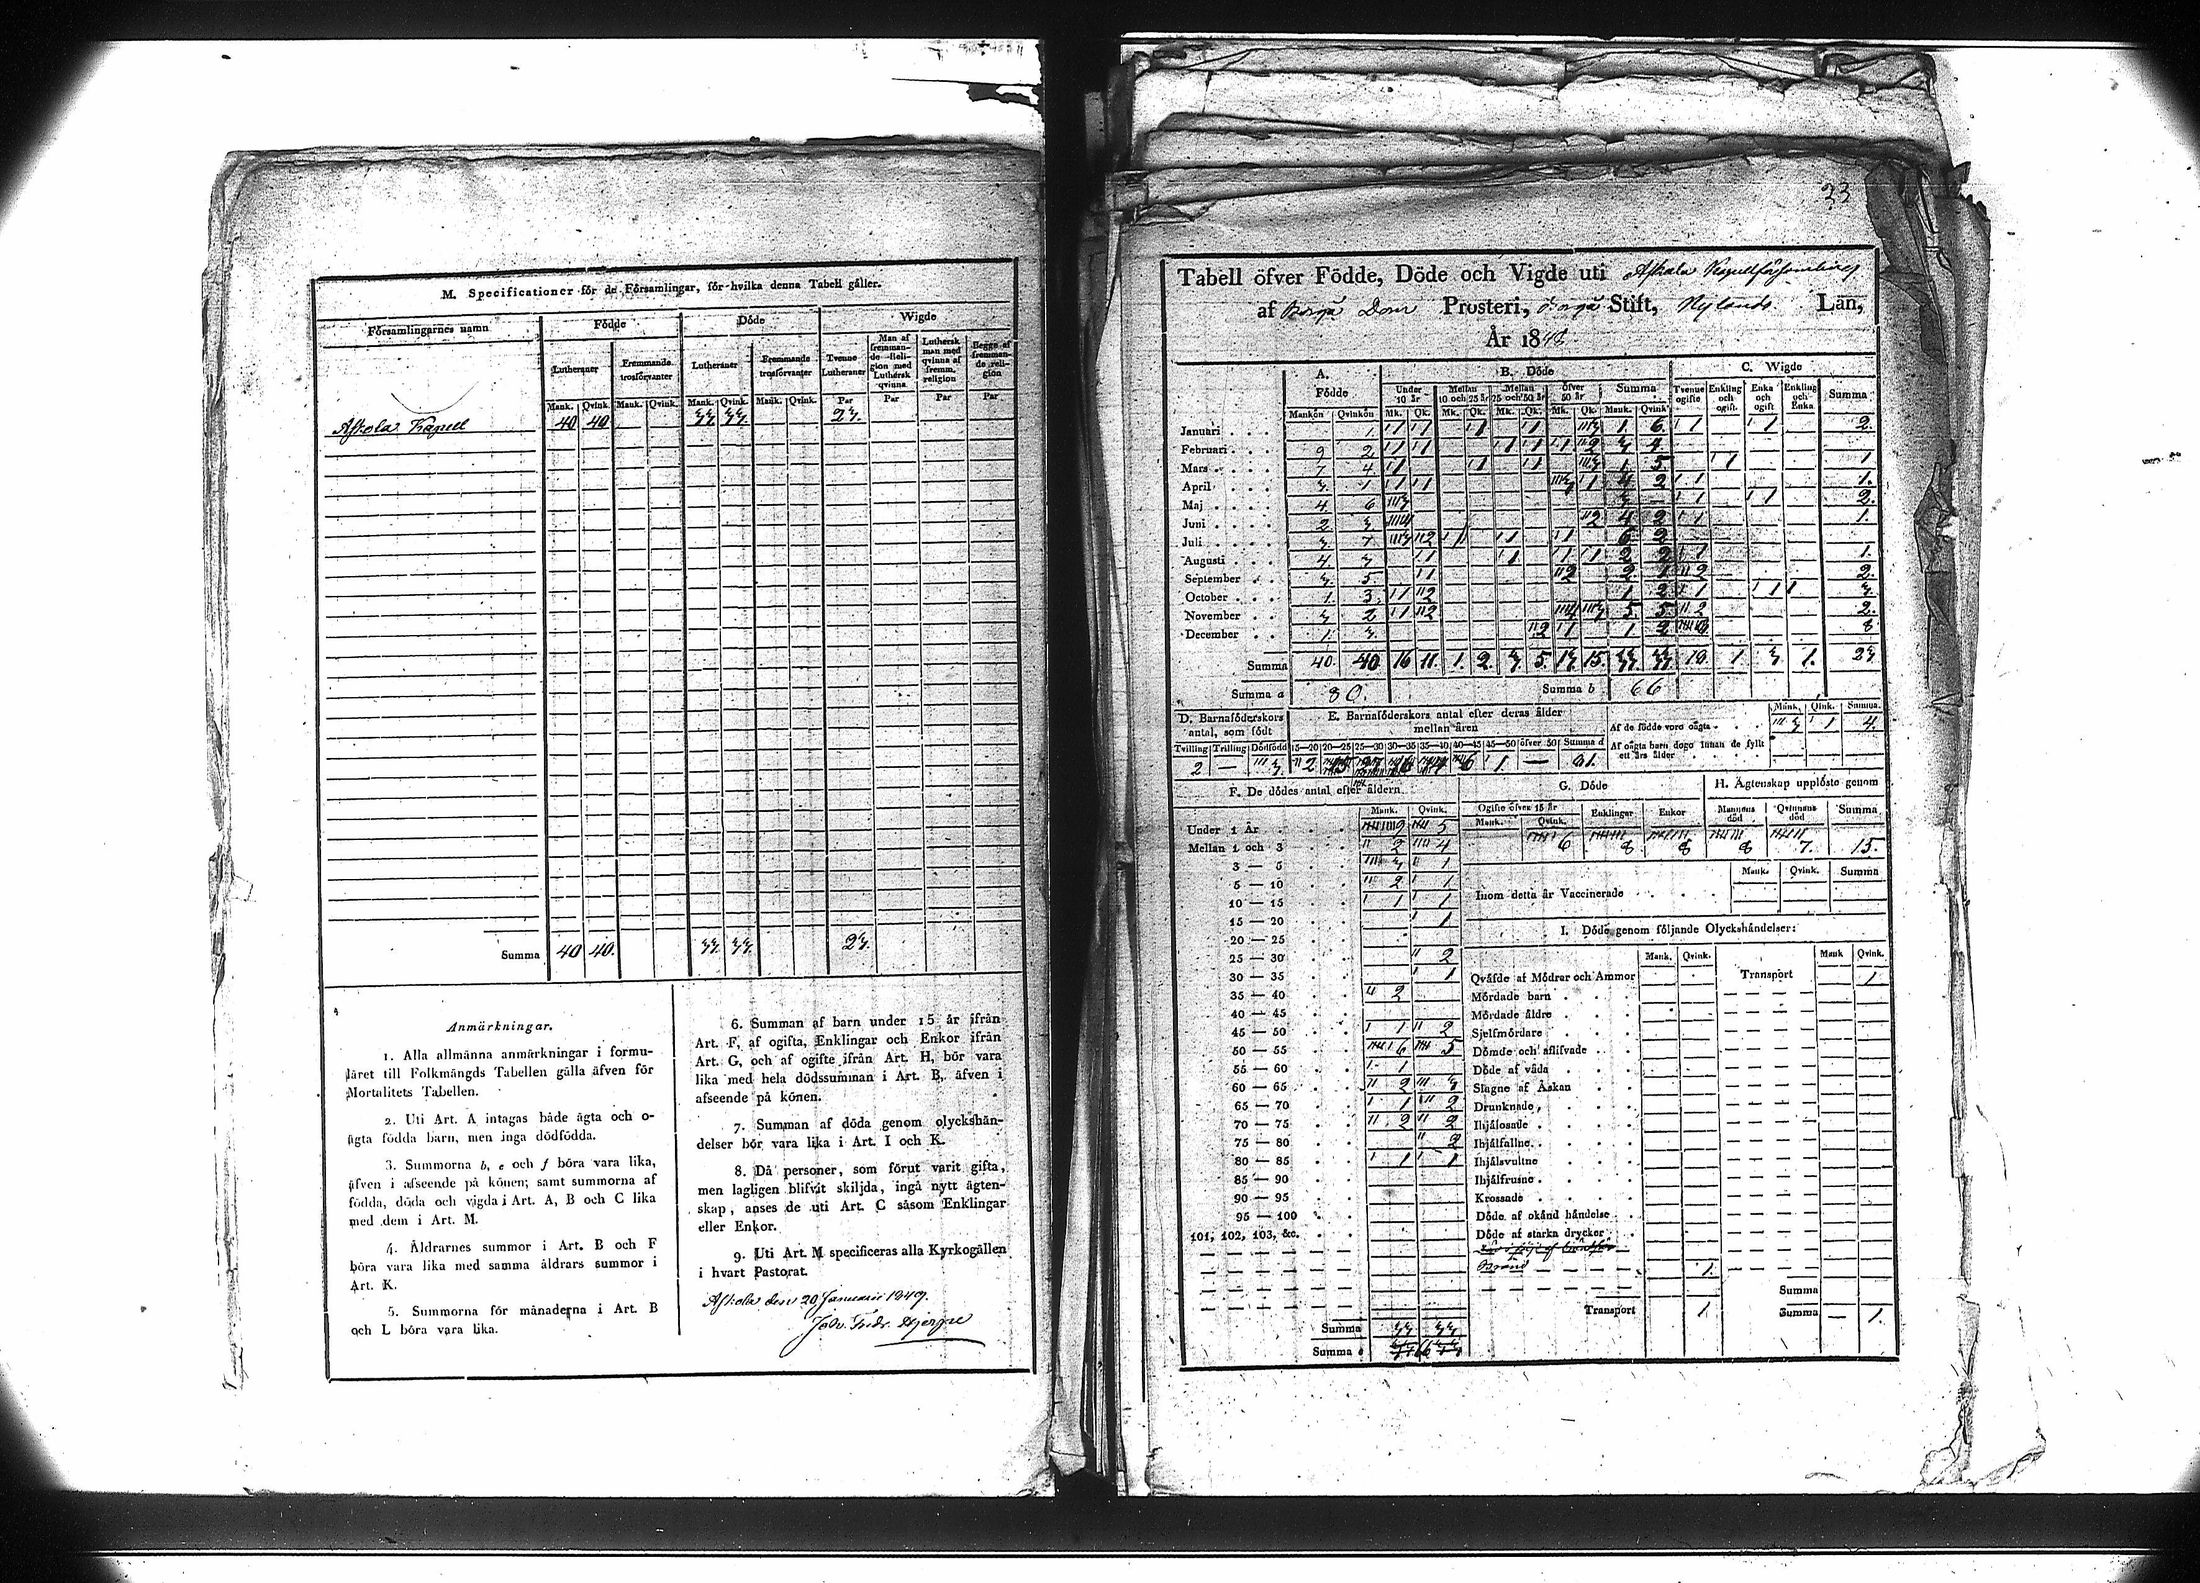 M. Specificationer för de Församlingar, för hvilka denna Tabell gäller.
Församlingarnes namn
Födde
Döde
Wigde
Lutheraner
Fremmande trosförvanter
Lutheraner
Fremmande trosförvanter
Tvenne Lutheraner
Man af fremmande Religion med Luthersk qvinna
Luthersk man med qvinna af fremm. religion
Begge af fremmande religion
Mank. Qvink. Mank. Qvink. Mank. Qvink. Mank. Qvink. Par Par Par Par
Askola Kapell 40 40 33 33. 23.
Summa 40 40. 33. 33. 23.
Anmärkningar.
1. Alla allmänna anmärkningar i formu-
läret till Folkmängds Tabellen gälla äfven för
Mortalitets Tabellen.
2. Uti Art. A intagas både ägta och o-
ägta födda barn, men inga dödfödda.
3. Summorna b, e och f böra vara lika,
äfven i afseende på könen; samt summorna af
födda, döda och vigda i Art. A, B och C lika
med dem i Art. M.
4. Åldrarnes summor i Art. B och F
böra vara lika med samma åldrars summor i
Art. K.
5. Summorna för månaderna i Art. B
och L böra vara lika.
6. Summan af barn under 15 år ifrån
Art. F, af ogifta, Enklingar och Enkor ifrån
Art. G, och af ogifte ifrån Art. H, bör vara
lika med hela dödssumman i Art. B, äfven i
afseende på könen.
7. Summan af döda genom olyckshän-
delser bör vara lika i Art. I och K.
8. Då personer, som förut varit gifta,
men lagligen blifvit skiljda, ingå nytt ägten-
skap, anses de uti Art. C såsom Enklingar
eller Enkor.
9. Uti Art. M specificeras alla Kyrkogällen
i hvart Pastorat.
Askola den 20 Januarii 1849.
23
Tabell öfver Födde, Döde och Vigde uti Askola Kapellförsamling
af Borgå Dom Prosteri, Borgå Stift, Nylands Län,
År 1848.
A. Födde
B. Döde
C. Wigde
Under 10 år
Mellan 10 och 25 år
Mellan 25 och 50 år
Öfver 50 år
Summa
Tvenne ogifte
Enkling och ogift.
Enka och ogift
Enkling och Enka
Summa
Mankön Qvinkön Mk. Qk. Mk. Qk. Mk. Qk. Mk. Qk. Mank. Qvink.
Januari 1 1 1 1 1 3 1 6 1 1 2
Februari 9 2 1 1 1 1 1 2 3 4
Mars 7 4 1 1 1 3 1 5 1 1
April 3 1 1 1 3 1 4 2 1 1.
Maj 4 6 3 3 — 1 1 2.
Juni 2 3 4 2 4 2 1 1.
Juli 3 7 3 2 1 1 1 6 2
Augusti 4 3 1 1 1 1 2 2 1 1.
September 3 5 1 2 2 1 2 2.
October 1 3 1 2 1 2 1 1 1 3.
November 3 2 1 2 4 3 5 5 2 2.
December 1 3 2 1 1 2 8 8
Summa 40 40 16 11 1. 2 3 5. 13 15. 33 33 18. 1 3 1. 23
Summa a 80.
Summa b 66
D. Barnaföderskors antal, som födt
Tvilling Trilling Dödfödd
2 — 3
E. Barnaföderskors antal efter deras ålder mellan åren
15—20 20—25 25—30 30—35 35—40 40—45 45—50 öfver 50 Summa d
2 6 1 — 81.
Mank. Qink. Summa.
Af de födde voro oägta 3 1 4.
Af oägta barn dogo innan de fyllt
ett års ålder
F. De dödes antal efter åldern.
Mank. Qvink.
Under 1 År 9 5
Mellan 1 och 3 2 4
3 — 5 3 1
5 — 10 2 1
10 — 15 1 1
15 — 20 1
20 — 25
25 — 30 2
30 — 35 1
35 — 40 2
40 — 45
45 — 50 1 2
50 — 55 6 5
55 — 60 1
60 — 65 2 3
65 — 70 1 2
70 — 75 2 2
75 — 80 2
80 — 85 1 1
85 — 90
90 — 95
95 — 100
101, 102, 103, &c.
Summa 33 33
Summa e
G. Döde
Ogifte öfver 15 år
Mank. Qvink. Enklingar Enkor
6 8 8
H. Ägtenskap upplöste genom
Mannens död Qvinnans död Summa
8 7. 15.
Mank. Qvink. Summa
Inom detta år Vaccinerade
I. Döde genom följande Olyckshändelser:
Mank. Qvink. Transport Mank Qvink.
1
Qväfde af Mödrar och Ammor
Mördade barn
Mördade äldre
Sjelfmördare
Dömde och aflifvade
Döde af våda
Slagne af Åskan
Drunknade
Ihjälosade
Ihjälfallne
Ihjälsvultne
Ihjälfrusne
Krossade
Döde af okänd händelse
Döde af starka drycker
Bränd 1.
Transport 1.
Summa
Summa — 1.